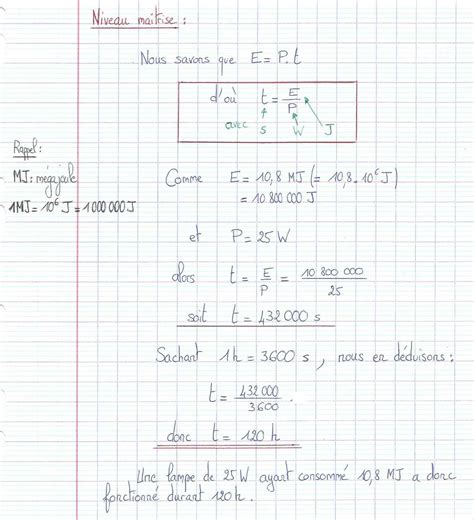 Niveau maîtrise :
Nous savons que E = P. t
d'où t = E/P
avec s W J
Rappel :
MJ : mégajoule
1MJ = 10⁶ J = 1 000 000 J
Comme E = 10,8 MJ (= 10,8 . 10⁶ J)
= 10 800 000 J
et P = 25 W
alors t = E/P = 10 800 000/25
soit t = 432 000 s
Sachant 1 h = 3600 s , nous en déduisons :
t = 432 000/3600 .
donc t = 120 h .
Une lampe de 25 W ayant consommé 10,8 MJ a donc
fonctionné durant 120 h .